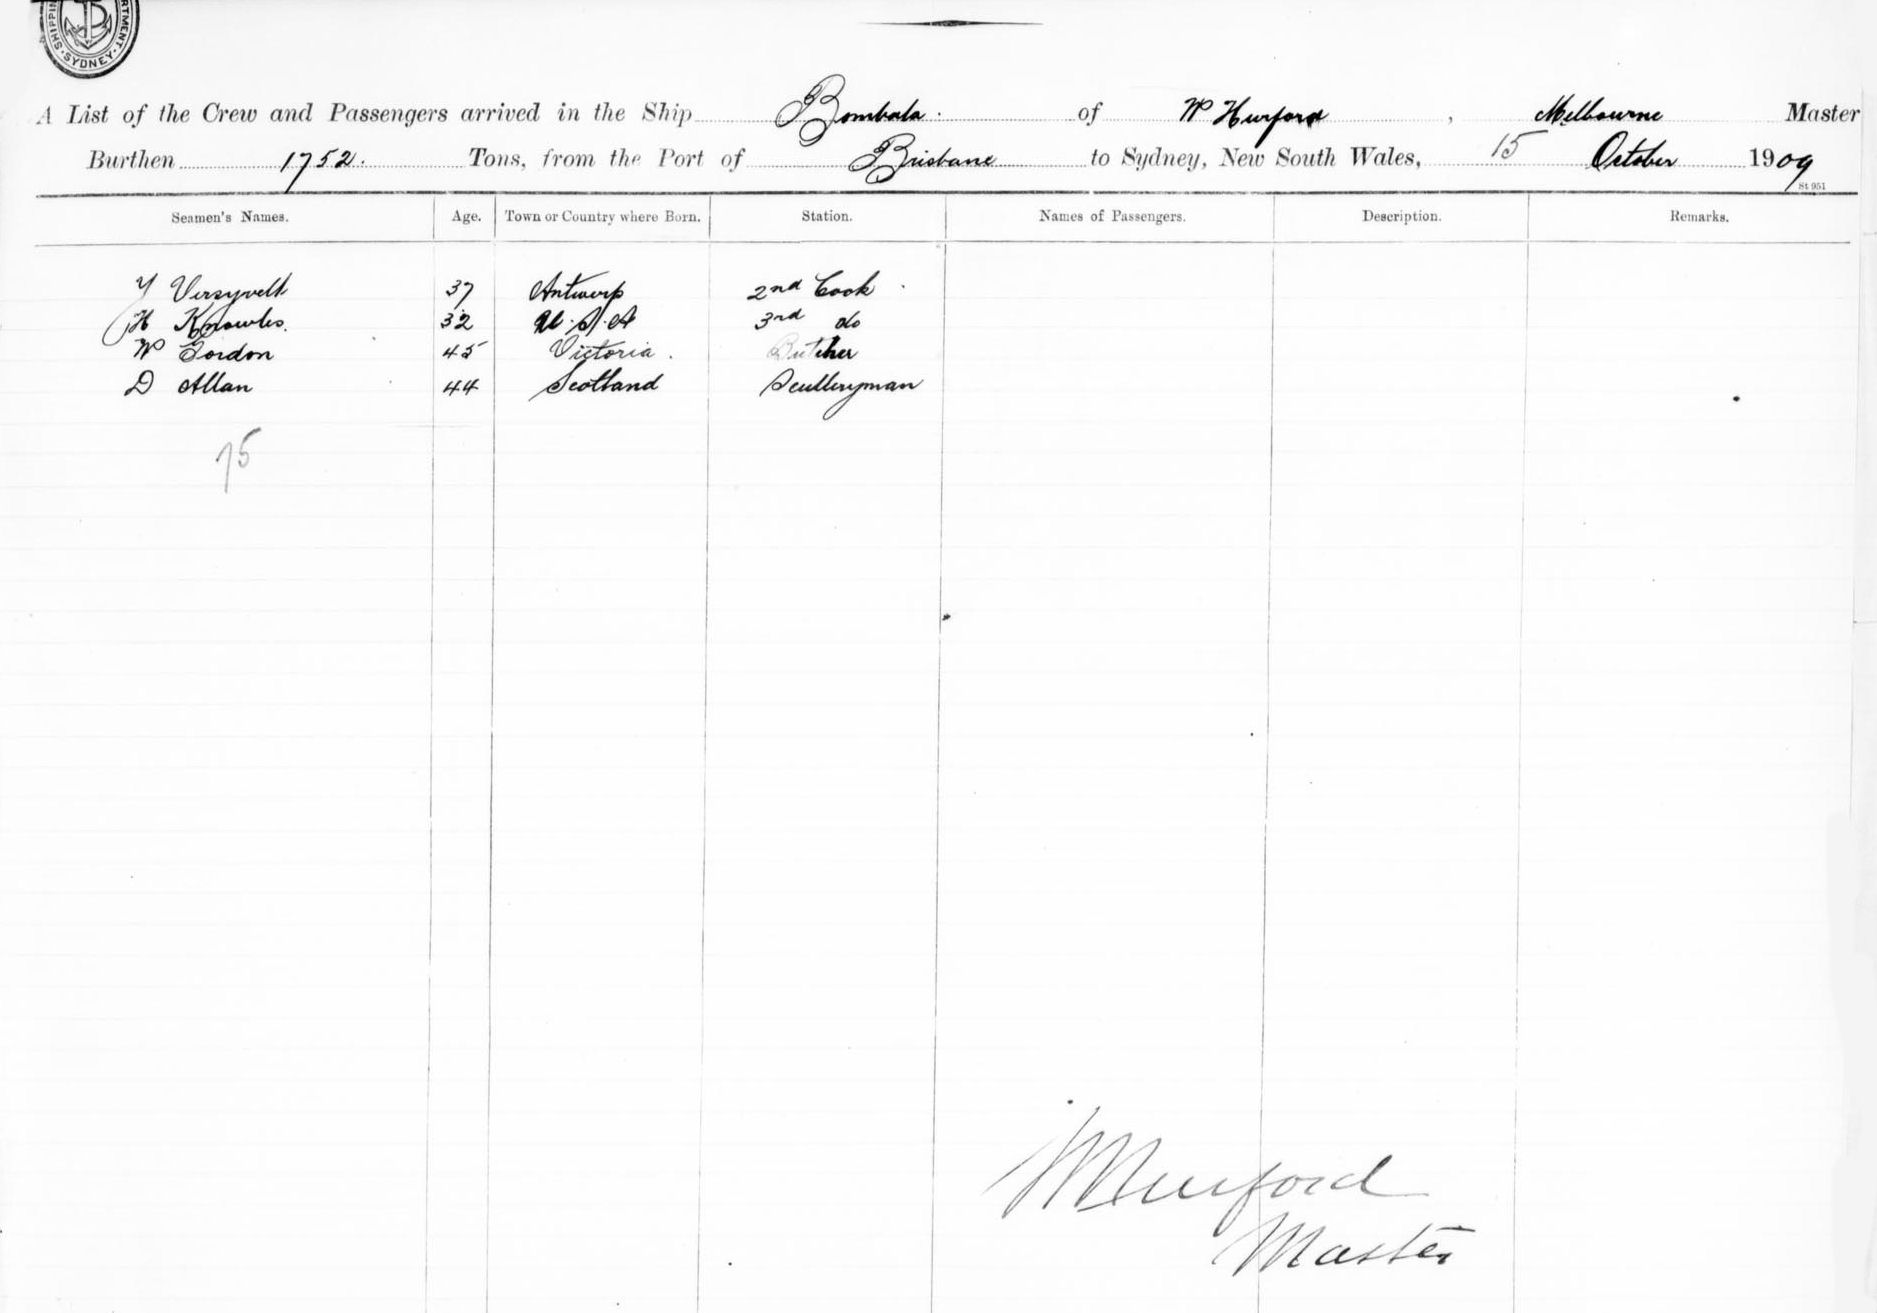 SHIPPIN RTMENT. SYDNEY
A List of the Crew and Passengers arrived in the Ship Bombala. of W Hurford, Melbourne Master
Burthen 1752. Tons, from the Port of Brisbane to Sydney, New South Wales, 15 October 1909
St 951
Seamen's Names. Age. Town or Country where Born. Station. Names of Passengers. Description. Remarks.
Y Versyvelt 37 Antwerp 2nd Cook
H Knowles. 32 U.S.A 3rd do
W Gordon 45 Victoria. Butcher
D Allan 44 Scotland Sculleryman
75
W Hurford
Master